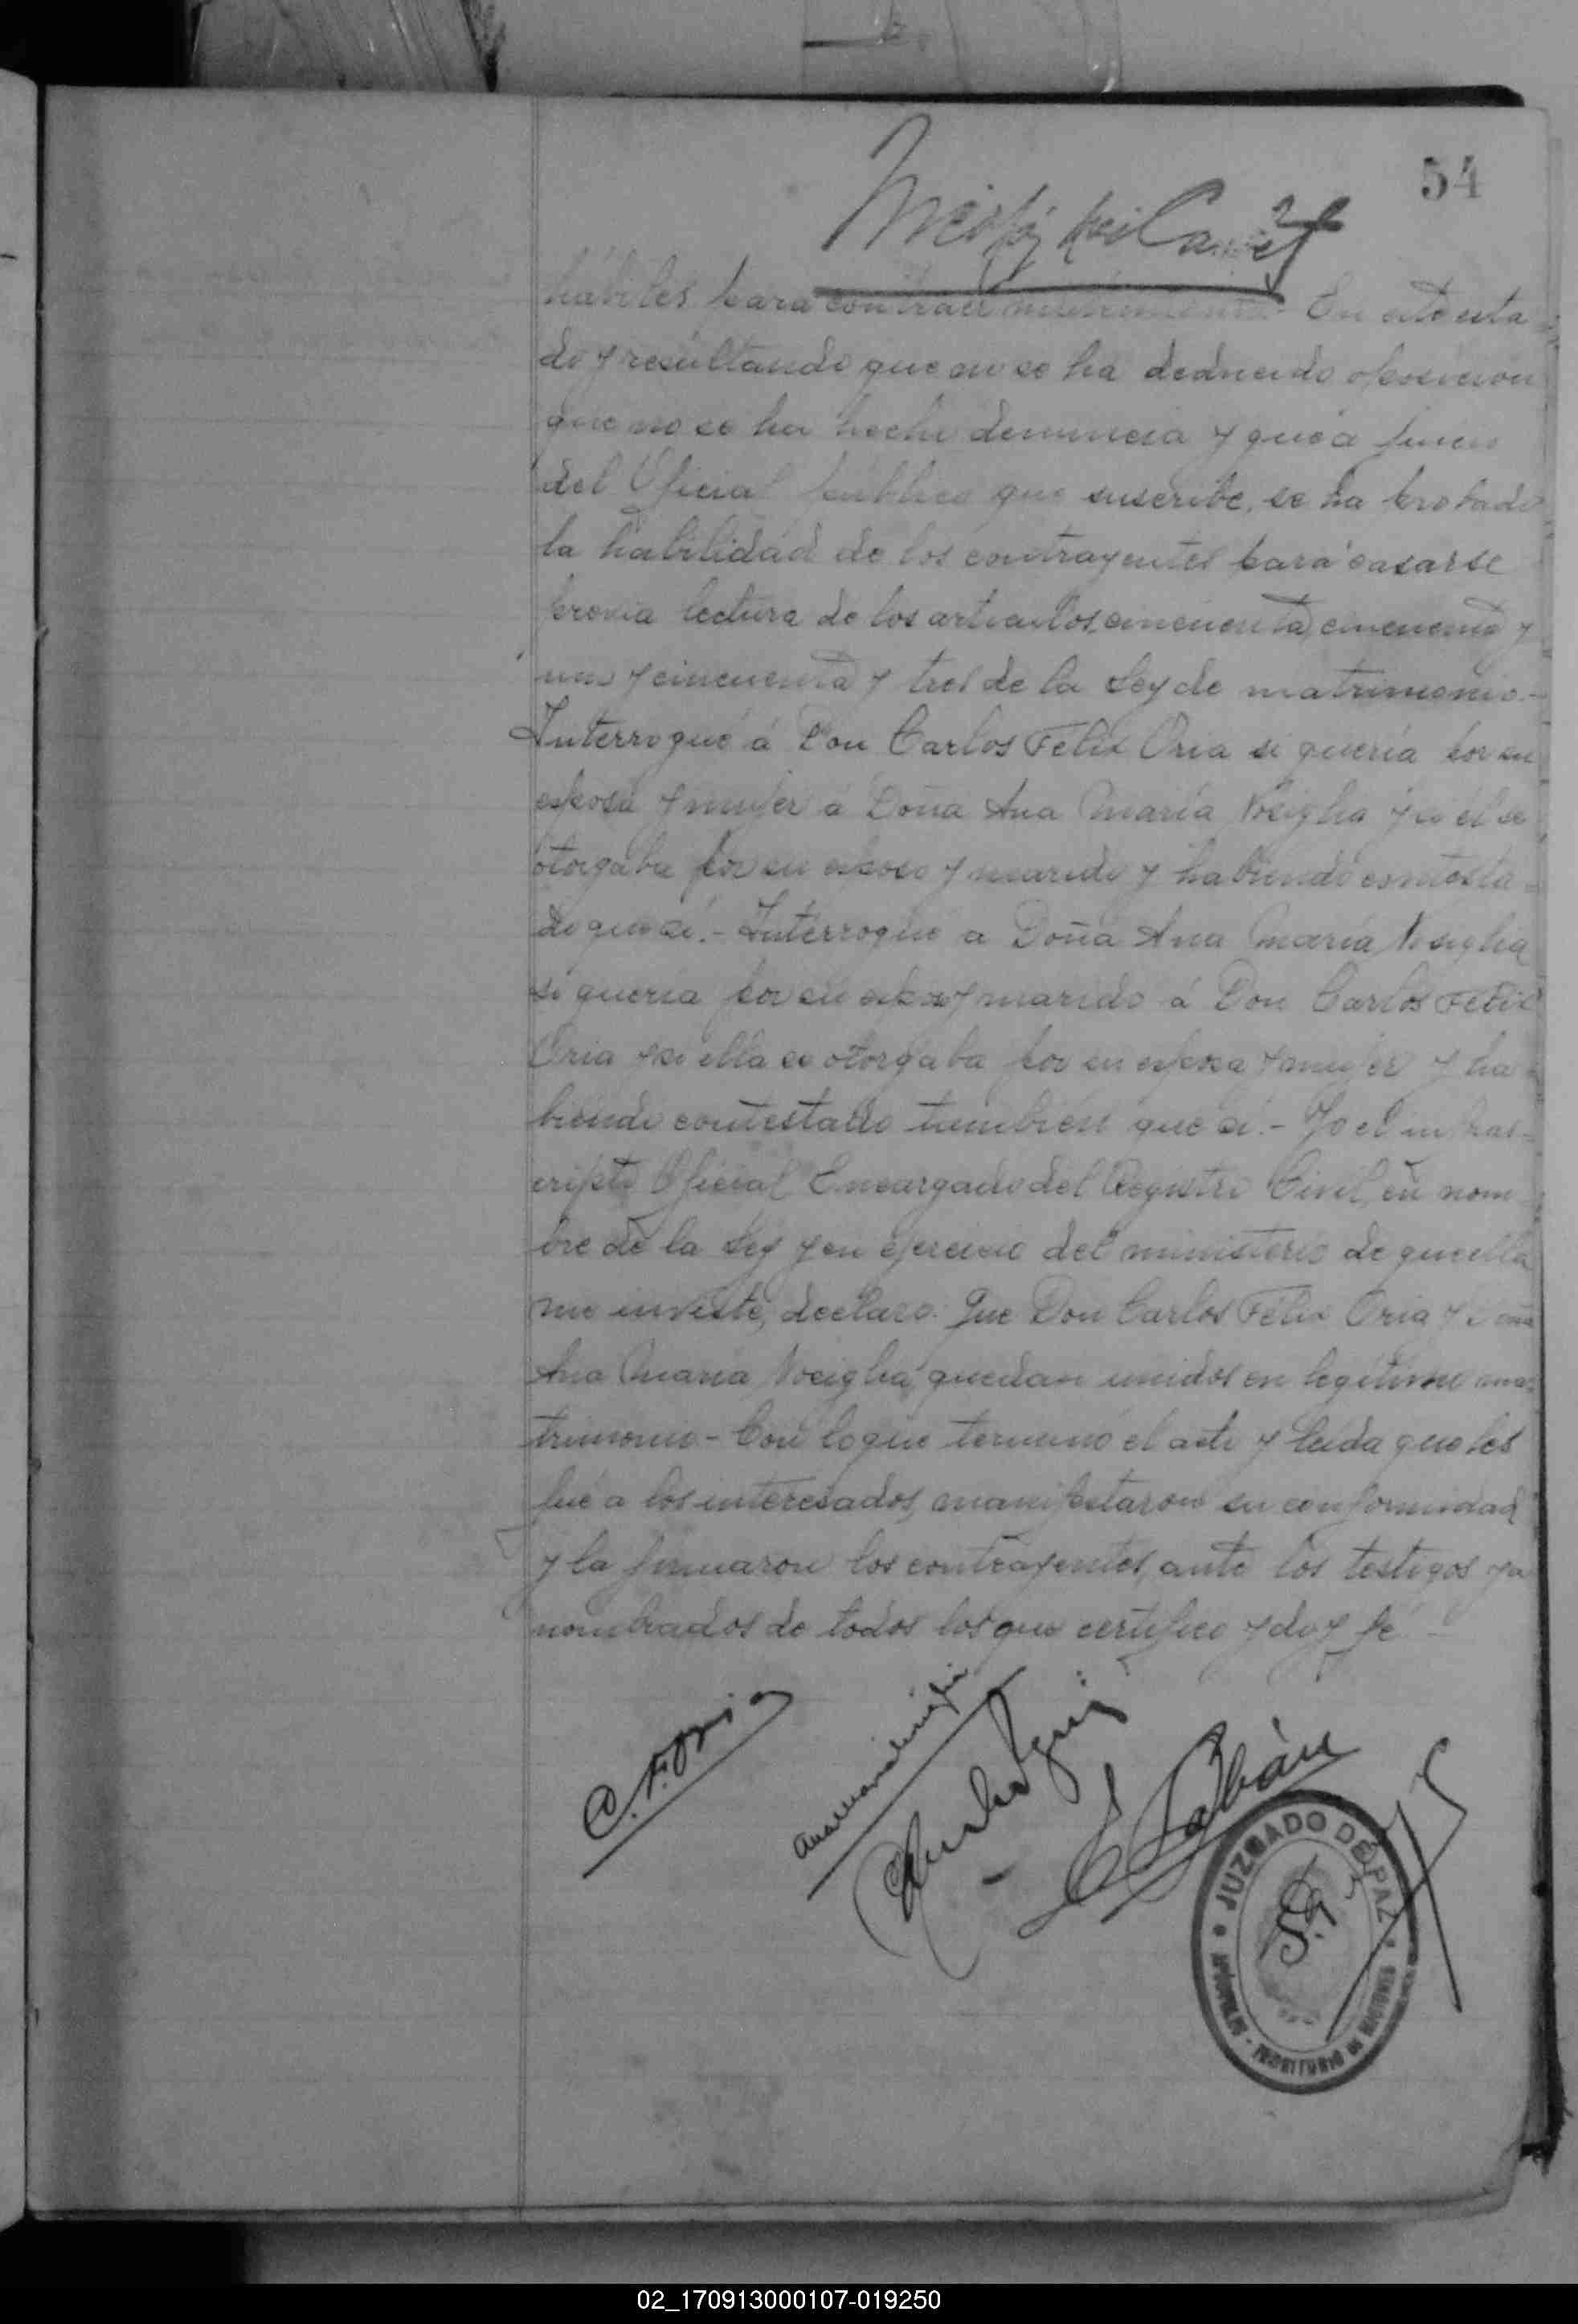 54
hábiles para contraer matrimonio - En este esta
do y resultando que no se ha deducido oposicion
que no se ha hecho denuncia y que á juicio
del Oficial público que suscribe, se ha probado
la habilidad de los contrayentes para casarse
previa lectura de los articulos, cincuenta, cincuenta y
uno y cincuenta y tres de la Ley de matrimonio.-
Interrogué á Don Carlos Felix Oria si quería por su
esposa y mujer á Doña Ana María Nosiglia y si él se
otorgaba por su esposo y marido y habiendo contesta
do que sí.- Interrogué a Doña Ana María Nosiglia
si quería por su esposo y marido á Don Carlos Felix
Oria y si ella se otorgaba por su esposa y mujer y ha
biendo contestado tambien que si.- Yo el infras-
cripto Oficial Encargado del Registro Civil, en nom
bre de la Ley y en ejercicio del ministerio de que ella
me inviste, declaro: Que Don Carlos Félix Oria y Doña
Ana María Nosiglia, quedan unidos en legítimo ma-
trimonio - Con lo que terminó el acto y leida que les
fué a los interesados, manifestaron su conformidad
y la firmaron los contrayentes, ante los testigos ya
nombrados de todos los que certifico y doy fé -
C. F. Oria
Ana Maria Nosiglia
JUZGADO DE PAZ
TERRITORIO DE MISIONES
02_170913000107-019250